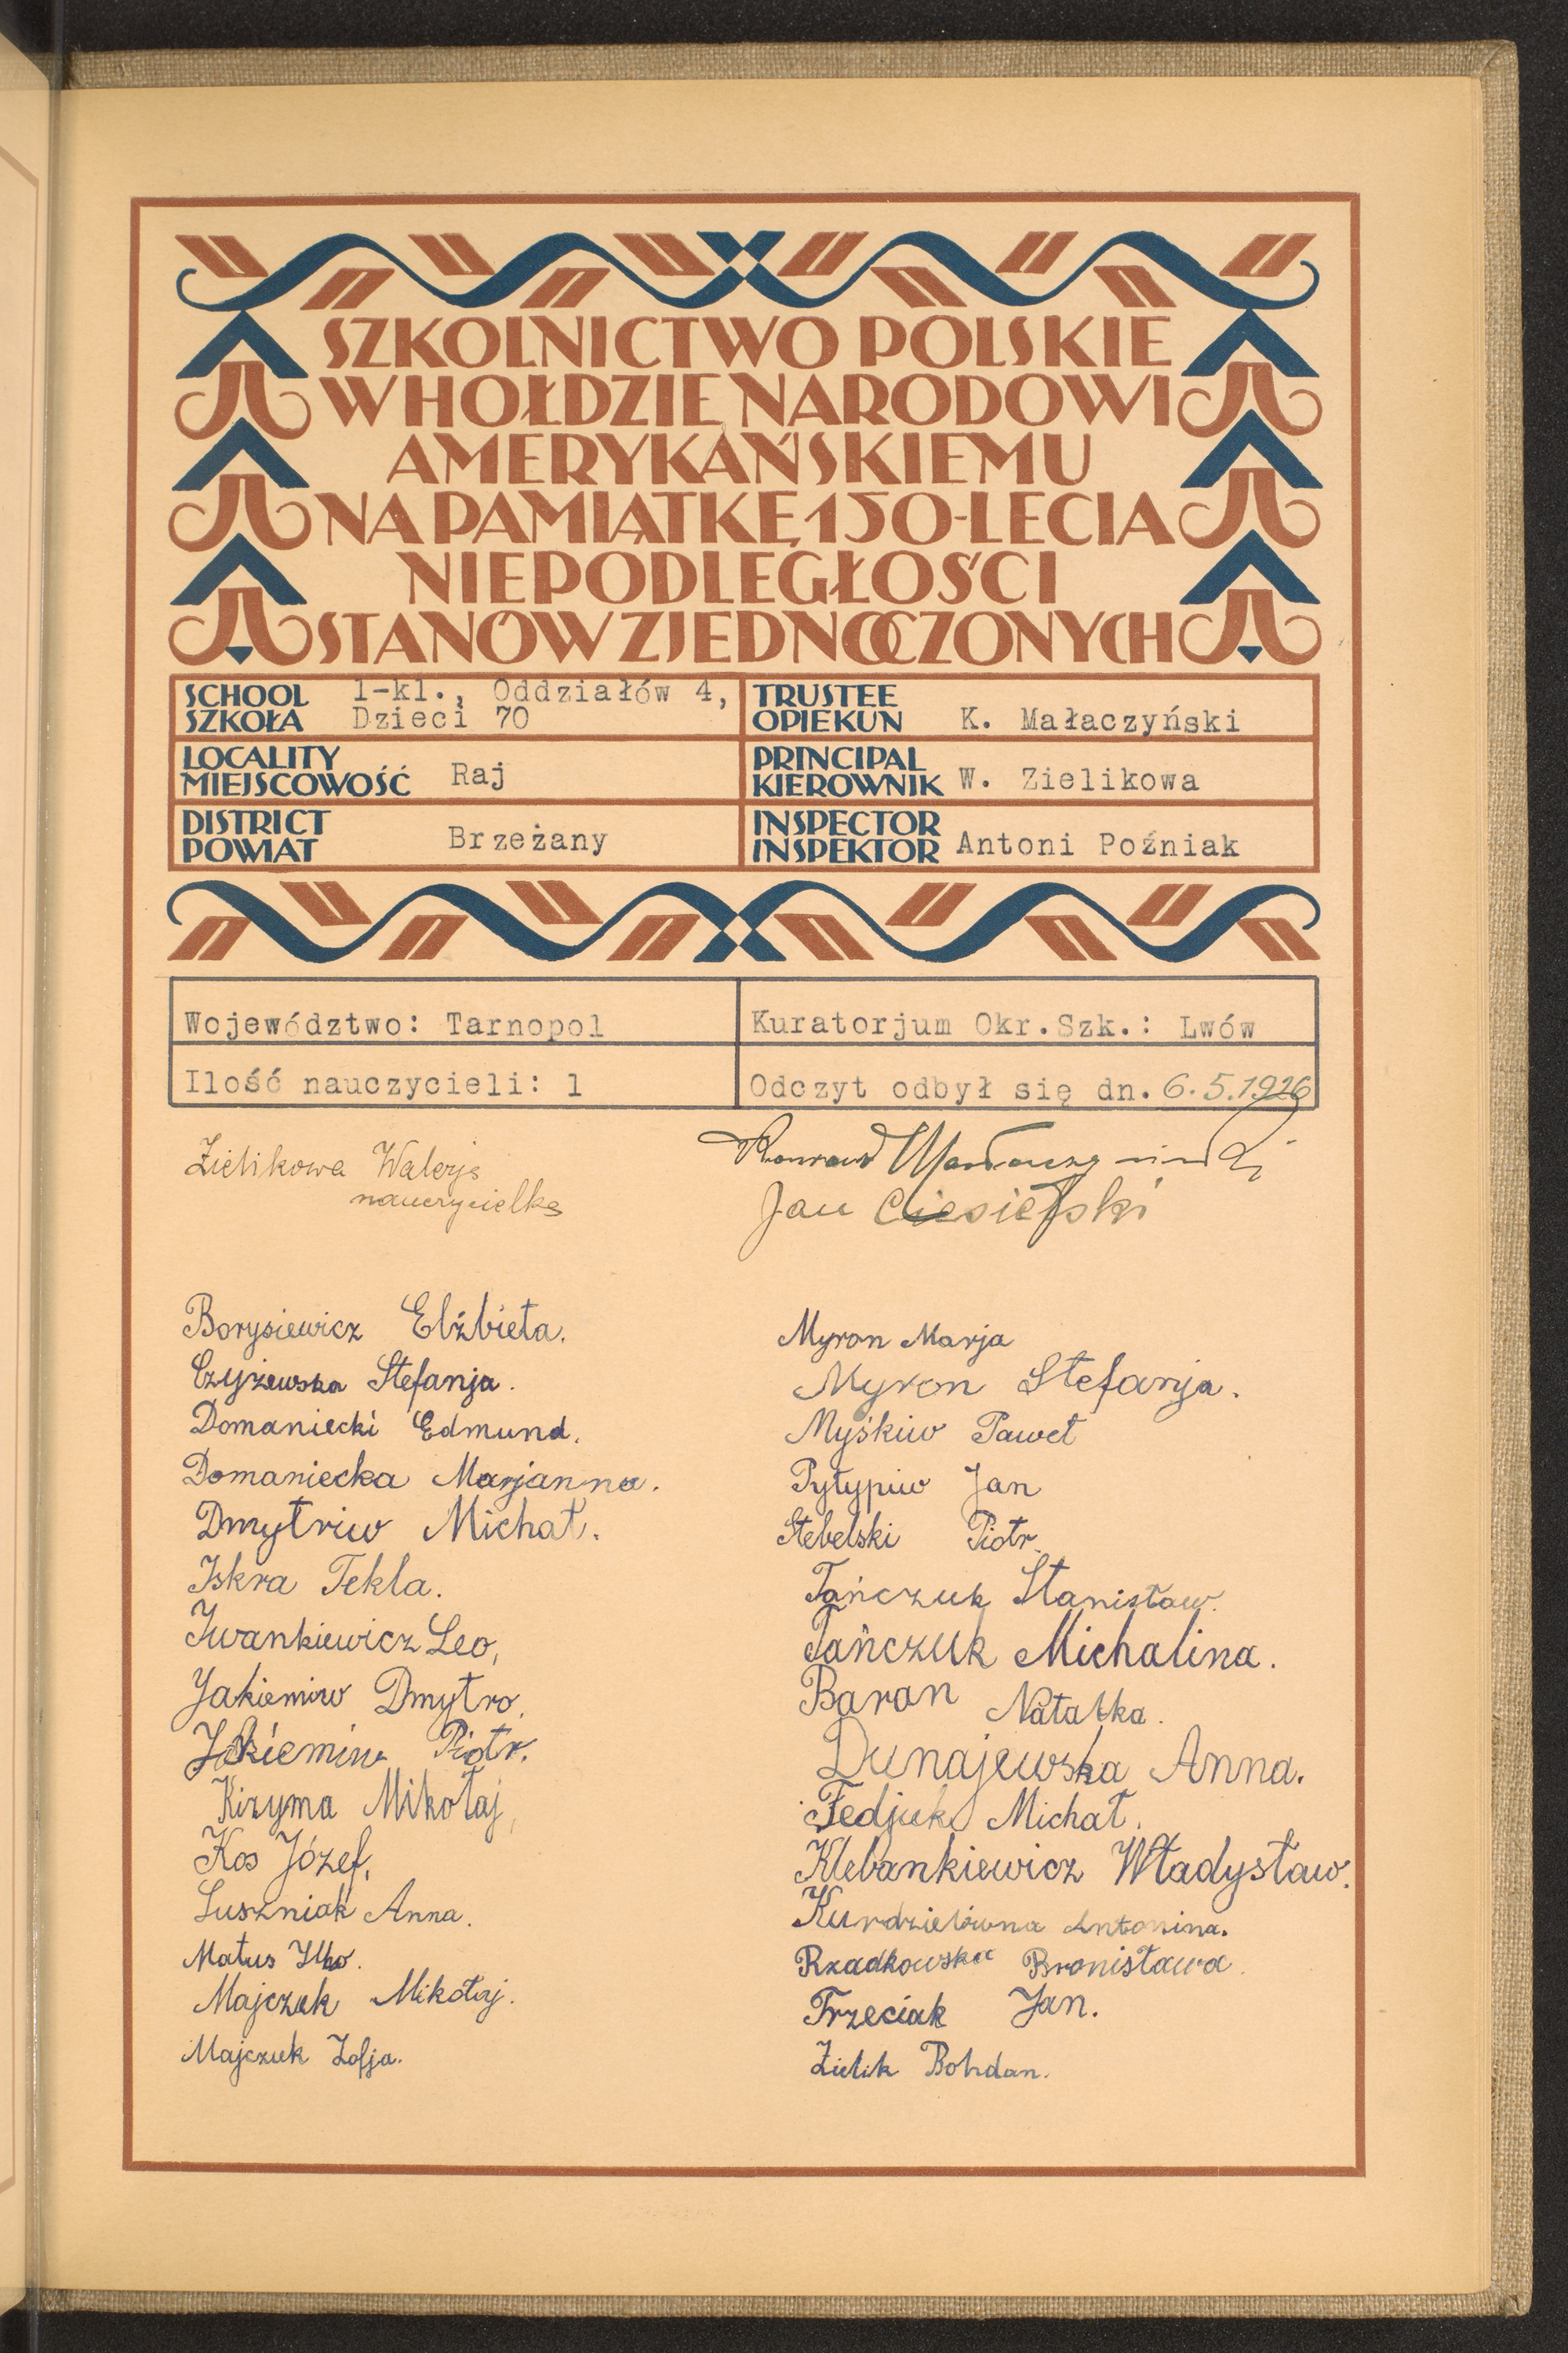 SZKOLNICTWO POLSKIE
W HOŁDZIE NARODOWI
AMERYKAŃSKIEMU
NA PAMIĄTKĘ 150-LECIA
NIEPODLEGŁOŚCI
STANÓW ZJEDNOCZONYCH
SCHOOL
SZKOŁA
1-kl., Oddziałów 4,
Dzieci 70
TRUSTEE
OPIEKUN K. Małaczyński
LOCALITY
MIEJSCOWOŚĆ Raj
PRINCIPAL
KIEROWNIK W. Zielikowa
DISTRICT
POWIAT Brzeżany
INSPECTOR
INSPEKTOR Antoni Poźniak
Województwo: Tarnopol
Kuratorjum Okr.Szk.: Lwów
Ilość nauczycieli: 1
Odczyt odbył się dn. 6.5.1926
Zielikowa Walerja
nauczycielka
Konrad Małaczyński
Jan Ciesielski
Borysiewicz Elżbieta.
Czyżewska Stefanja.
Domaniecki Edmund.
Domaniecka Marjanna.
Dmytriw Michał.
Iskra Tekla.
Iwankiewicz Leo,
Jakiemiw Dmytro.
Jakiemiw Piotr.
Kizyma Mikołaj,
Kos Józef.
Luszniak Anna.
Matus Ilko.
Majczuk Mikołaj.
Majczuk Zofja.
Myron Marja
Myron Stefanja.
Myśkiw Paweł
Pytypiw Jan
Stebelski Piotr.
Tańczuk Stanisław.
Tańczuk Michalina.
Baran Natalka.
Dunajewska Anna.
Fedjuk Michał.
Klebankiewicz Władysław.
Kurdzielówna Antonina.
Rzadkowska Bronisława.
Trzeciak Jan.
Zielik Bohdan.